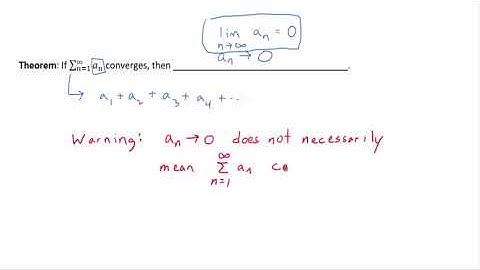 lim a_n = 0
n→∞
a_n → 0
Theorem: If ∑_{n=1}^{∞} a_n converges, then ___________________________.
a_1 + a_2 + a_3 + a_4 + ...
Warning: a_n → 0 does not necessarily
mean ∑_{n=1}^{∞} a_n co